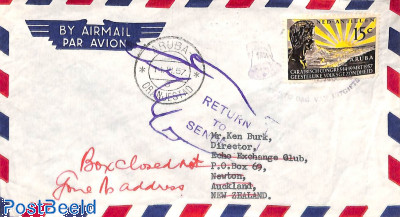 BY AIRMAIL
PAR AVION
ARUBA
ORANJESTAD
NED. ANTILLEN
15c
ARUBA
CARAIBISCH CONGRES
GEESTELIJKE VOLKSGEZONDHEID
RETURN
TO
SENDER
Mr.Ken Burk,
Director,
Echo Exchange Club,
P.O.Box 69,
Newton,
Auckland,
NEW ZEALAND.
Box Closed not
Gone No address
PostBeeld